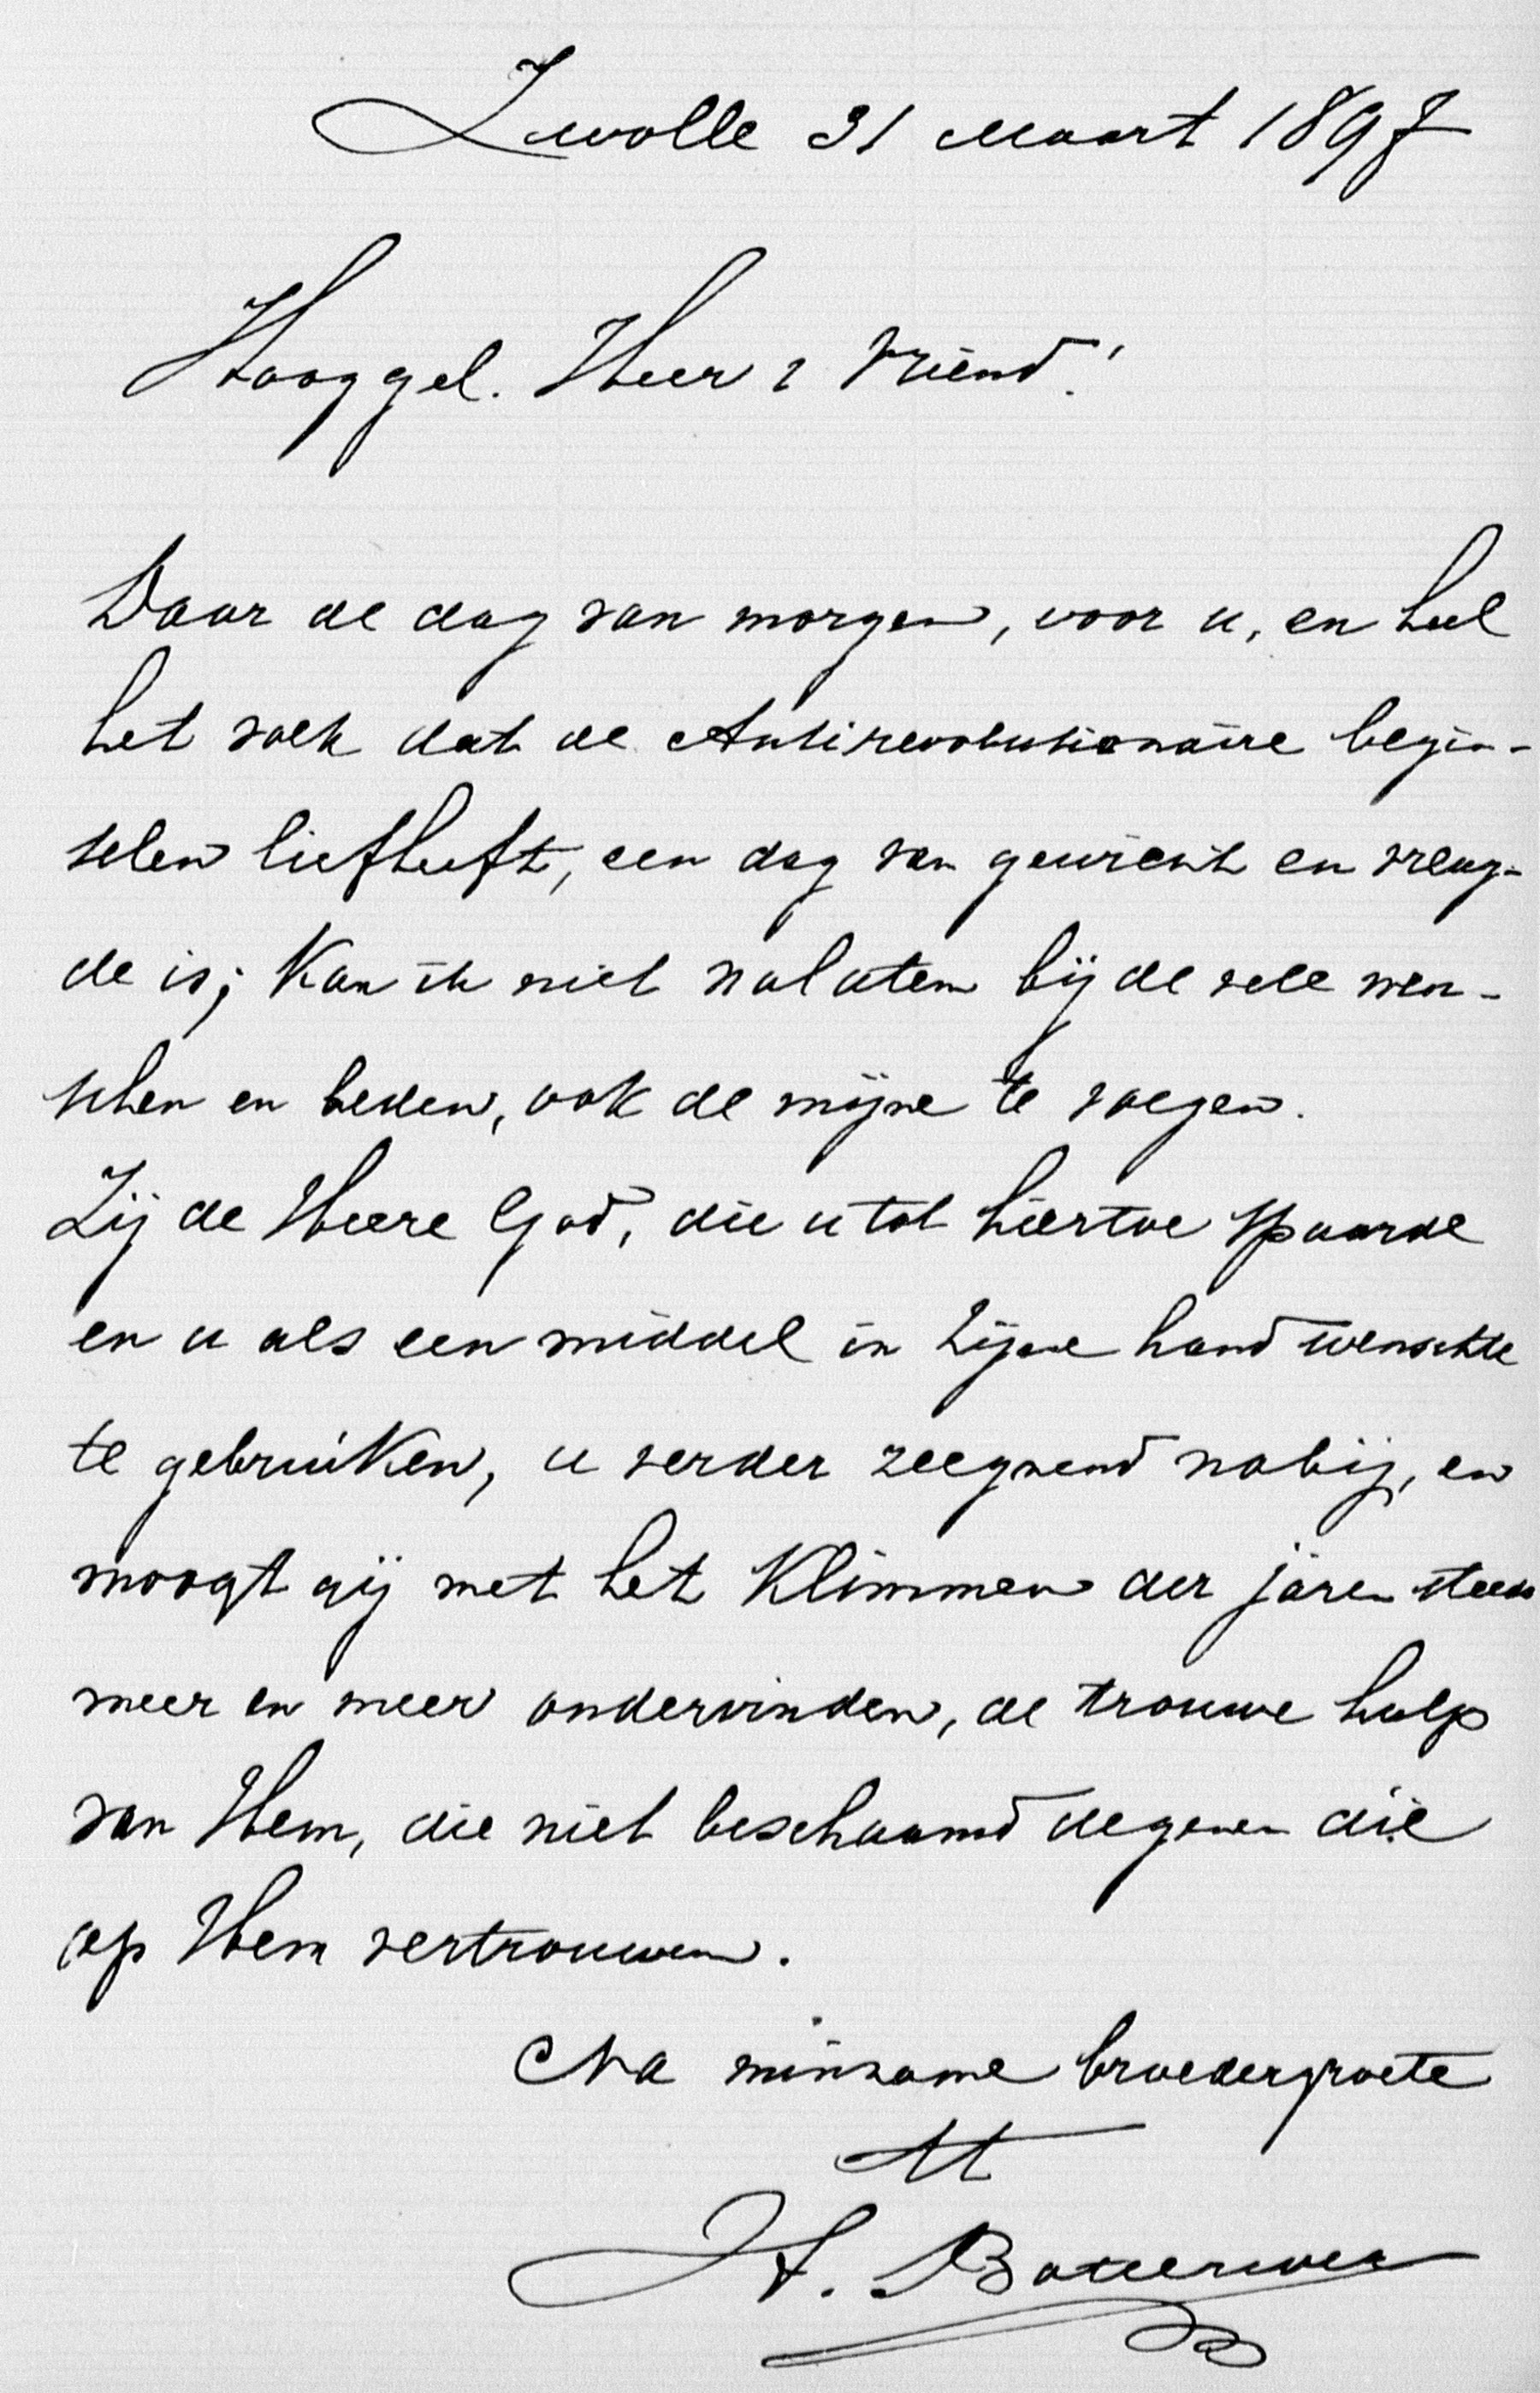 Zwolle 31 Maart 1897
Hooggel. Heer & Vriend!
Daar de dag van morgen, voor u, en heel
het volk dat de Antirevolutionaire begin-
selen liefheeft, een dag van gewicht en vreug-
de is; kan ik niet nalaten bij de vele wen-
schen en beden, ook de mijne te voegen.
Zij de Heere God, die u tot hiertoe spaarde
en u als een middel in Zijne hand wenschte
te gebruiken, u verder zeegnend nabij, en
moogt gij met het klimmen der jaren steeds
meer en meer ondervinden, de trouwe hulp
van Hem, die niet beschaamd degenen die
op Hem vertrouwen.
Na minzame broedergroete
tt